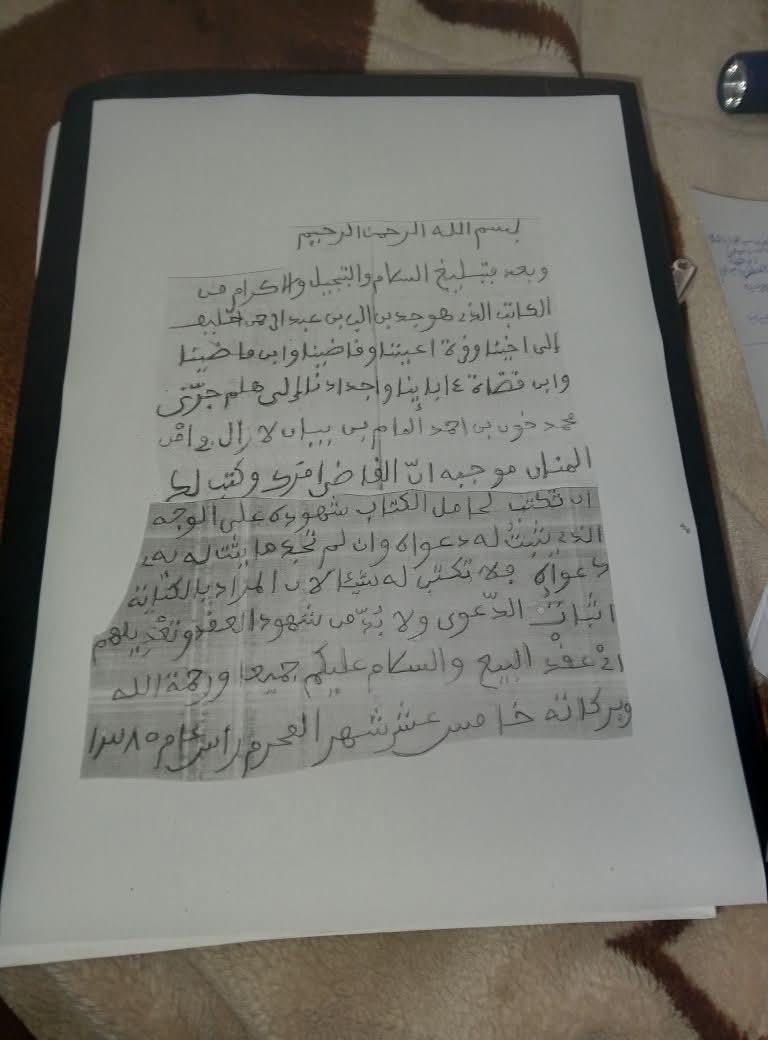 بسم الله الرحمن الرحيم
وبعد فتبليغ السلام والتبجيل والاكرام من
الكاتب الذى هو جد بن الب بن عبد الرحمن
إلى اخينا وقرة اعيننا وقاضينا وابن قاضينا
وابن قضاة ءابائنا واجدادنا إلى هلم جرّى
محمد بن احمد العام بن لا زال فى امن
المنان موجبه انّ القاضى امرك وكتب لك
ان تكتب لحامل الكتاب شهوده على الوجه
الذى يثبتُ له دعواه وان لم تجد ما يثبت له به
دعواه فلا تكتب له شيئا لان المراد بالكتابة
اثباتُ الدّعوى ولا بُدّ من شهود العقد وتعْديلهم
اىْ عقْد البيع والسلام عليكم جميعا ورحمة الله
وبركاته خامس عشر شهر المحرم راس عام ١٣٨٥